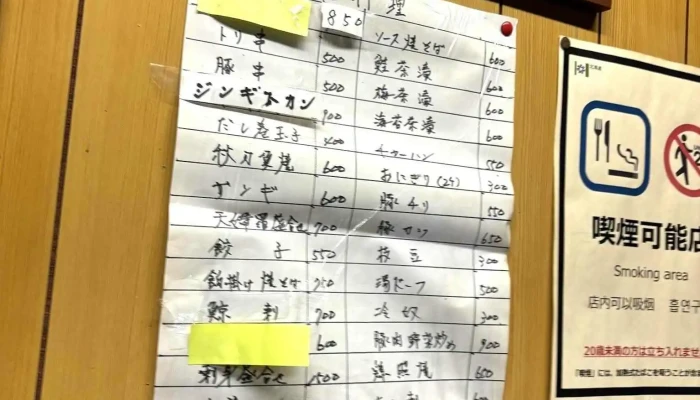 理
850
トリ串 500
豚串 500
ジンギスカン 900
だし巻玉子 400
秋刀魚焼 600
ザンギ 600
天婦羅盛合せ 700
餃子 550
飴掛け焼そば 750
鯨刺 700
600
刺身盛合せ 1500
ソース焼そば 600
鮭茶漬 600
梅茶漬 600
海苔茶漬 600
チャーハン 550
おにぎり(2ケ) 300
豚チリ 550
豚カツ 650
枝豆 300
湯ドーフ 500
冷奴 300
豚肉野菜炒め 900
照焼 650
喫煙可能店
Smoking area
店内可以吸烟 흡연구
20歳未満の方は立ち入れませ
「喫煙」には、加熱式たばこを吸うことが含ま